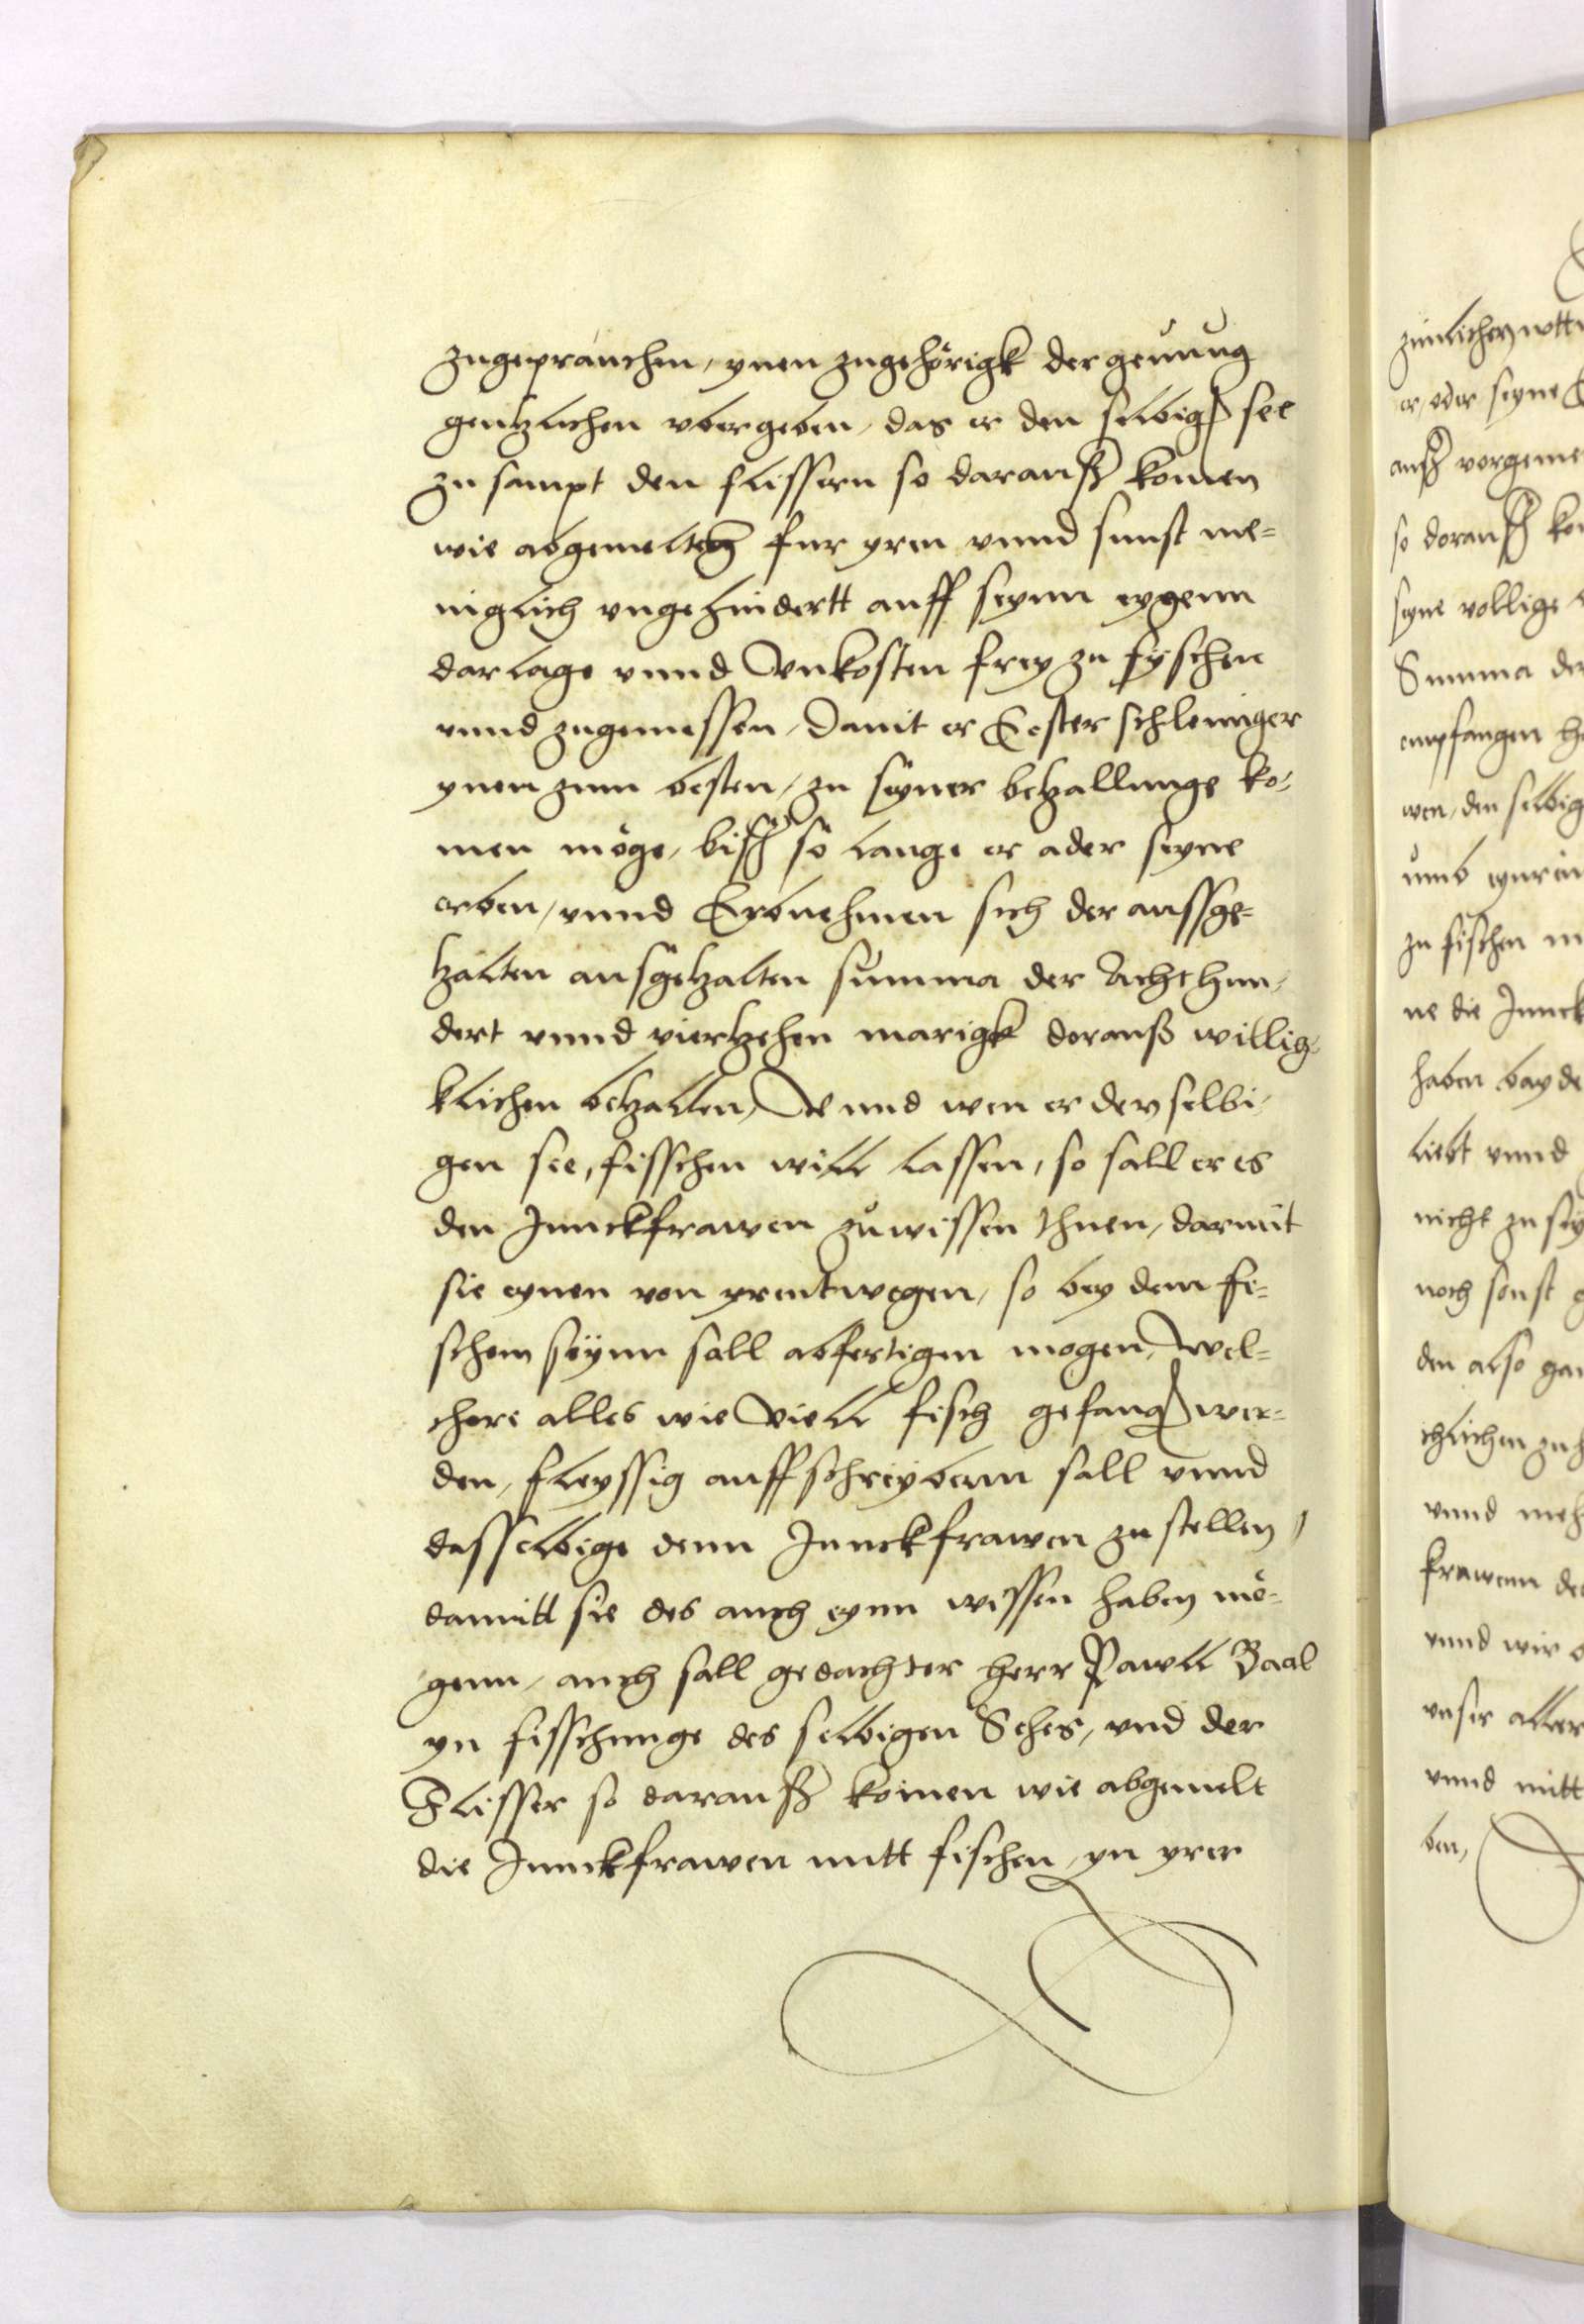 zugeprauchen, ynen zugehörigk der genung
gentzlichen vbergeben, das er den selbigen see
zu sampt den flissern so darauß komen
wie abgemelten fur yren vnnd sunst me-
niglich vngehindertt auff seynn eygenn
darlage vnnd Vnkosten frey zu fyschen
vnnd zugenissen, Damit er Dester schleuniger
ynen zum besten, zu seyner betzallunge ko-
men möge, biß so lange er ader seyne
erben, vnnd Erbnehmen sich der aussge-
tzalten ausgetzalten summa der Achthun-
dert vnnd viertzehen marigk dorauß willig-
klichen betzallen, Vnnd wen er denselbi-
gen see, fisschen will lassen, so sall er es
den Junckfrawen zuwissen thuen, darmit
sie eynen von yrentwegen, so bey dem fi-
schem seynn sall abfertigen mogen, Wel-
chere alles wie Viell fisch gefangen wer-
den, fleyssig auffschreybenn sall vnnd
dasselbige denn Junckfrawen zustellen,
damitt sie des auch eynn wissen haben mö-
genn, auch sall gedachter herr Pawll Baal
yn fisschunge des selbigen Sehes, vnd der
Flisser so darauß komen wie abgemelt
die Junckfrawen mitt fischen, yn yrer
er, oder seyne
auß vorgeme
so dorauß ko
seyne vollige
Summa der
empfangen h
wen, den selbig
zu fischen
ne die Junck
haben bayde
liebt vnnd
nicht zu sey
noch sonst
den also gan
vnnd meh
frawenn de
vnnd wir
vnser aller
vnnd mitt
ben,